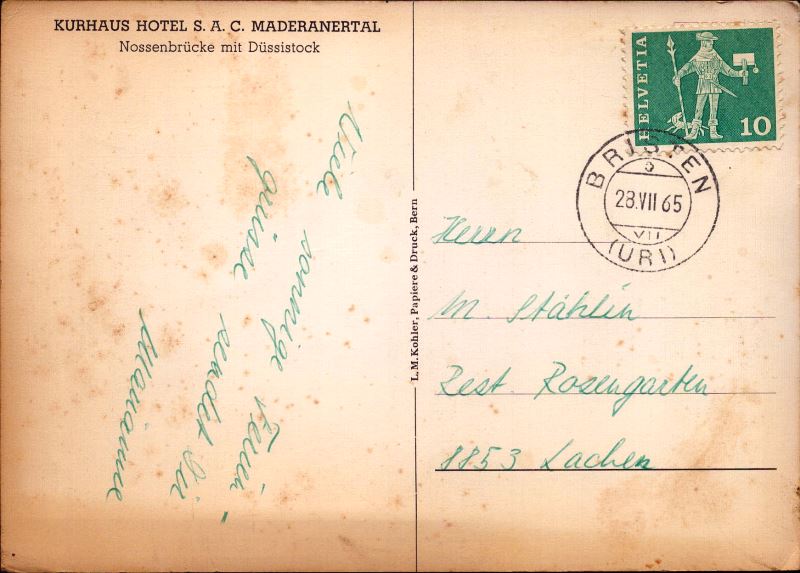 KURHAUS HOTEL S. A. C. MADERANERTAL
Nossenbrücke mit Düssistock
Viele sonnige Ferien-
grüsse sendet Dir
Marianne
L. M. Kohler, Papiere & Druck, Bern
HELVETIA
10
BRISTEN
b
28.VII 65
VII
(URI)
Herrn
M. Stählin
Rest. Rosengarten
8853 Lachen